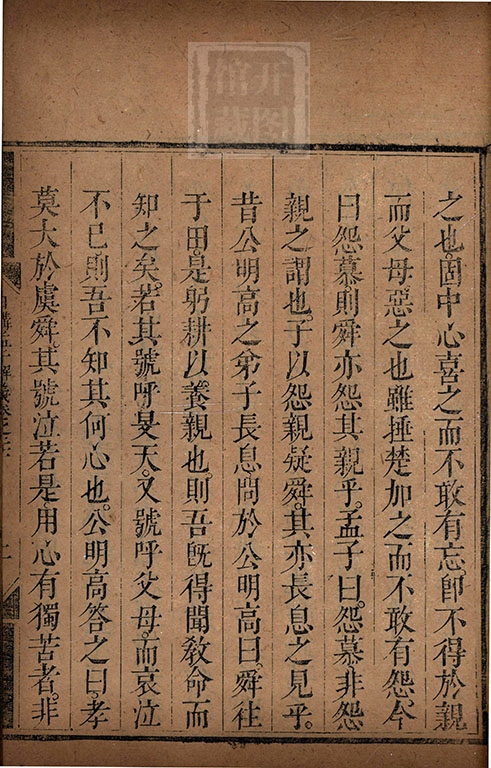 之也固中心喜之而不敢有忘卽不得於親
而父母惡之也雖捶楚加之而不敢有怨今
曰怨慕則舜亦怨其親乎。孟子曰。怨慕。非怨
親之謂也。子以怨親疑舜。其亦長息之見乎。
昔公明高之弟子長息問於公明高曰。舜往
于田。是躬耕以養親也。則吾旣得聞敎命而
知之矣。若其號呼旻天。又號呼父母。而哀泣
不已。則吾不知其何心也。公明高答之曰。孝
莫大於虞舜。其號泣若是。用心有獨苦者。非
日講
解義卷之二
开图
馆藏